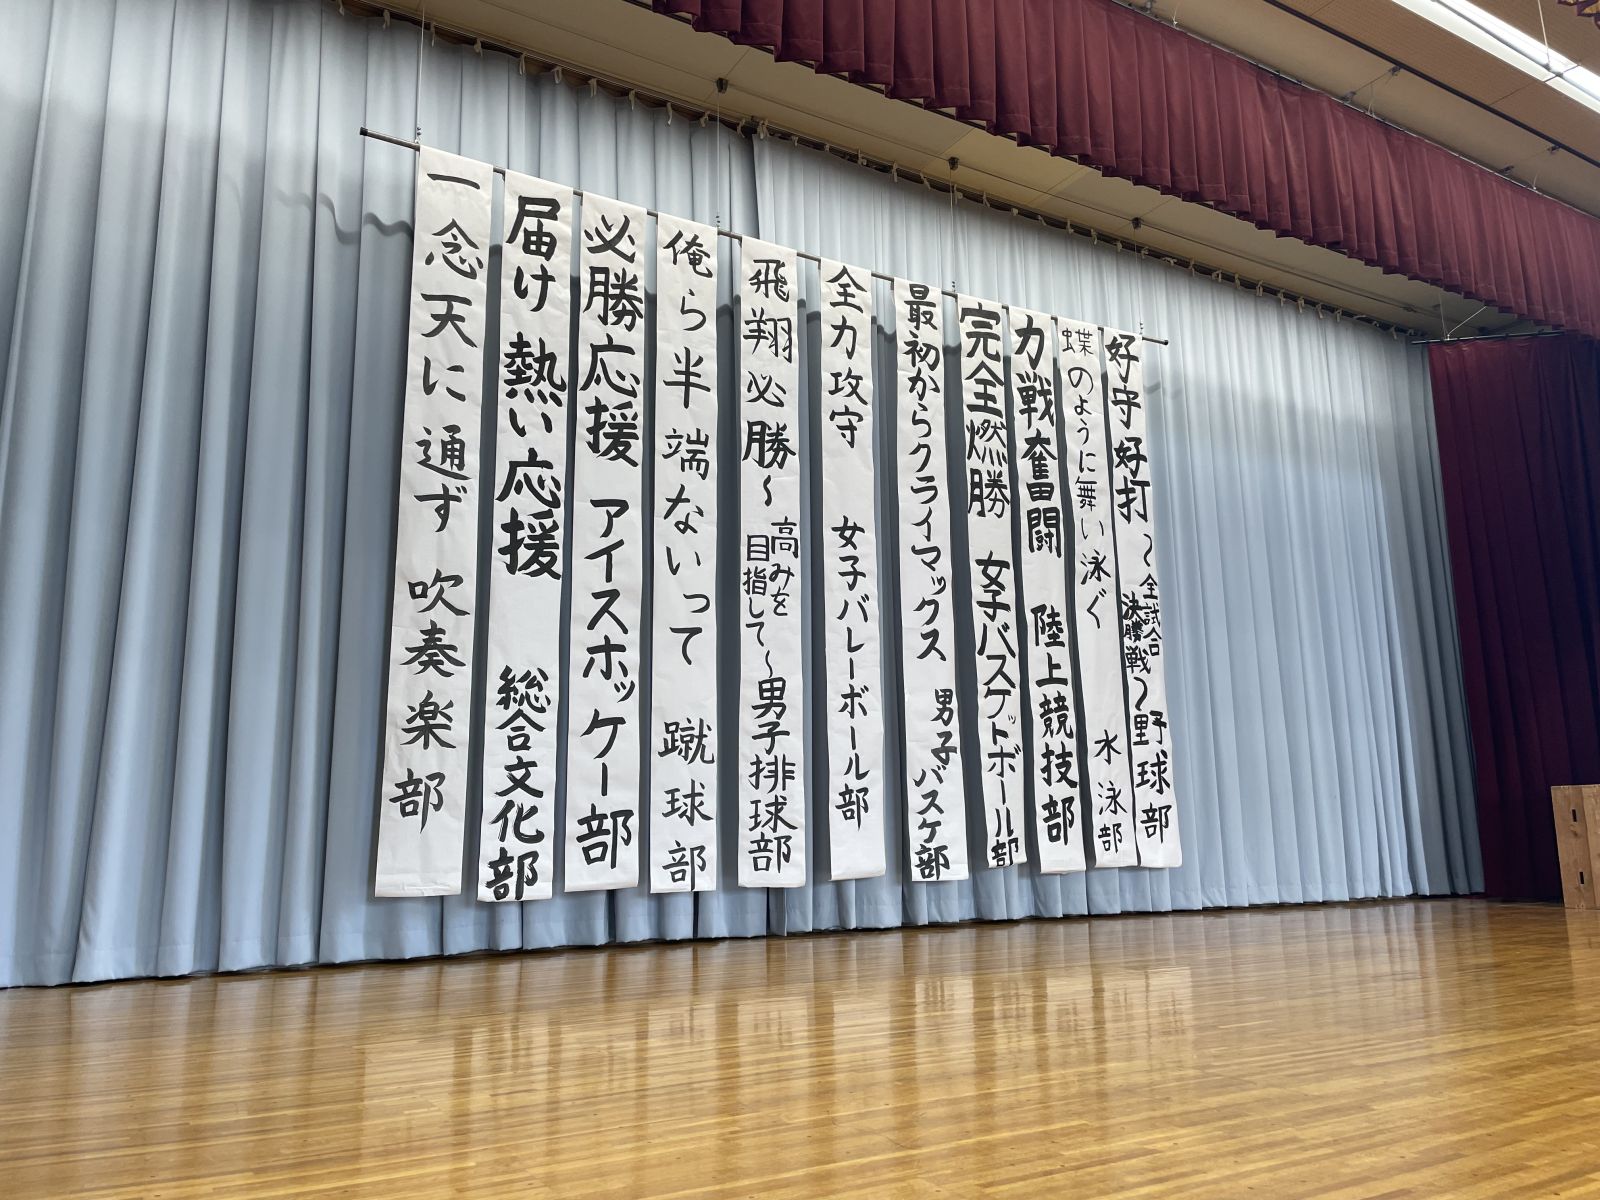 好守好打 〜全試合決勝戦〜 野球部
蝶のように舞い泳ぐ 水泳部
力戦奮闘 陸上競技部
完全燃勝 女子バスケットボール部
最初からクライマックス 男子バスケ部
全力攻守 女子バレーボール部
飛翔必勝〜高みを目指して〜男子排球部
俺ら半端ないって 蹴球部
必勝応援 アイスホッケー部
届け 熱い応援 総合文化部
一念天に通ず 吹奏楽部